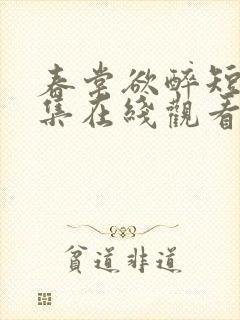 春堂欲醉短
集在綫觀看
貧道非道